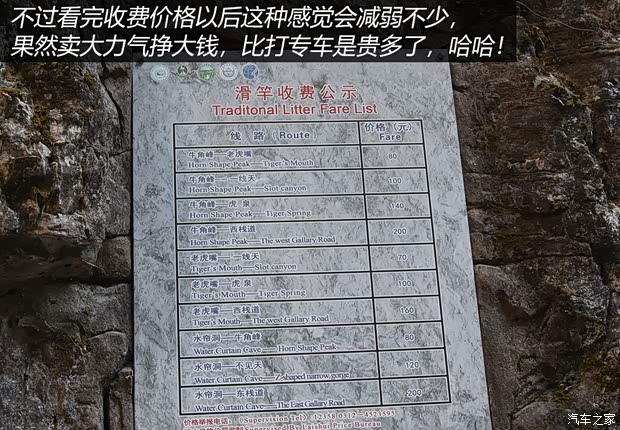 不过看完收费价格以后这种感觉会减弱不少，
果然卖大力气挣大钱，比打专车是贵多了，哈哈！
滑竿收费公示
Traditonal Litter Fare List
线 路（Route） 价格（元）
Fare
牛角峰——老虎嘴
Horn Shape Peak——Tiger's Mouth 80
牛角峰——一线天
Horn Shape Peak——Slot canyon 100
牛角峰——虎 泉
Horn Shape Peak——Tiger Spring 140
牛角峰——西栈道
Horn Shape Peak——The west Gallary Road 200
老虎嘴——一线天
Tiger's Mouth——Slot canyon 70
老虎嘴——虎 泉
Tiger's Mouth——Tiger Spring 100
老虎嘴——西栈道
Tiger's Mouth——The west Gallary Road 160
水帘洞——牛角峰
Water Curtain Cave——Horn Shape Peak 80
水帘洞——不见天
Water Curtain Cave——Z-shaped narrow gorge 120
水帘洞——东栈道
Water Curtain Cave——The East Gallary Road 200
价格举报电话：（Supervision Tel）：12358 0312—4523595
Supervised By Laishui Price Bureau
汽车之家